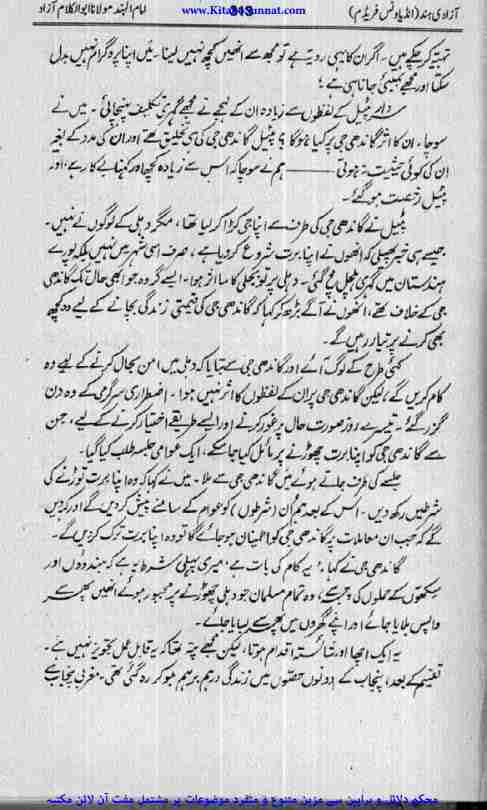 آزادی ہند (انڈیا ونس فریڈم)
www.KitaboSunnat.com
313
امام الہند مولانا ابوالکلام آزاد
تہیّہ کر چکے ہیں ۔ اگر ان کا یہی رویّہ ہے تو مجھ سے انھیں کچھ نہیں لینا۔ میں اپنا پروگرام نہیں بدل
سکتا اور مجھے بمبئی جانا ہی ہے؛
سردار پٹیل کے لفظوں سے زیادہ ان کے لہجے نے مجھے گہری تکلیف پہنچائی ۔ میں نے
سوچا، ان کا اثر گاندھی جی پر کیا ہوگا ؟ پٹیل گاندھی جی کی ہی تخلیق تھے اور ان کی مدد کے بغیر
ان کی کوئی حیثیت نہ ہوتی ——— ہم نے سوچا کہ اس سے زیادہ کچھ اور کہنا بے کار ہے، اور
پٹیل رخصت ہو گئے۔
پٹیل نے گاندھی جی کی طرف سے اپنا جی کڑا کر لیا تھا، مگر دہلی کے لوگوں نے نہیں۔
جیسے ہی خبر پھیلی کہ انھوں نے اپنا برت شروع کر دیا ہے، صرف اسی شہر میں نہیں بلکہ پورے
ہندستان میں گہری ہلچل مچ گئی۔ دہلی پر تو بجلی کا سا اثر ہوا۔ ایسے گروہ جو ابھی حال تک گاندھی
جی کے خلاف تھے، انھوں نے آگے بڑھ کر کہا کہ گاندھی جی کی قیمتی زندگی بچانے کے لیے وہ کچھ
بھی کرنے پر تیار رہیں گے۔
کئی طرح کے لوگ آئے اور گاندھی جی سے بتایا کہ دہلی میں امن بحال کرنے کے لیے وہ
کام کریں گے، لیکن گاندھی جی پر ان کے لفظوں کا اثر نہیں ہوا۔ اضطراری سرگرمی کے دو دن
گزر گئے۔ تیسرے روز صورت حال پر غور کرنے اور ایسے طریقے اختیار کرنے کے لیے، جن
سے گاندھی جی کو اپنا برت چھوڑنے پر مائل کیا جا سکے، ایک عوامی جلسہ طلب کیا گیا۔
جلسے کی طرف جاتے ہوئے میں گاندھی جی سے ملا۔ میں نے کہا کہ وہ اپنا برت توڑنے کی
شرطیں رکھ دیں۔ اس کے بعد ہم اُن (شرطوں) کو عوام کے سامنے پیش کر دیں گے اور کہہ دیں
گے کہ جب ان معاملات پر گاندھی جی کو اطمینان ہو جائے گا تو وہ اپنا برت ترک کر دیں گے۔
گاندھی جی نے کہا، یہ کام کی بات ہے، میری پہلی شرط یہ ہے کہ ہندوؤں اور
سکھوں کے حملوں کی وجہ سے، وہ تمام مسلمان جو دہلی چھوڑنے پر مجبور ہوئے انھیں پھر سے
واپس بلایا جائے اور اپنے گھروں میں پھر سے بسایا جائے۔
یہ ایک اچھا اور شائستہ اقدام ہوتا، لیکن مجھے پتہ تھا کہ یہ قابل عمل تجویز نہیں ہے۔
تقسیم کے بعد، پنجاب کے دونوں حصّوں میں زندگی درہم برہم ہو کر رہ گئی تھی۔ مغربی پنجاب سے
محکم دلائل و براہین سے مزین متنوع و منفرد موضوعات پر مشتمل مفت آن لائن مکتبہ